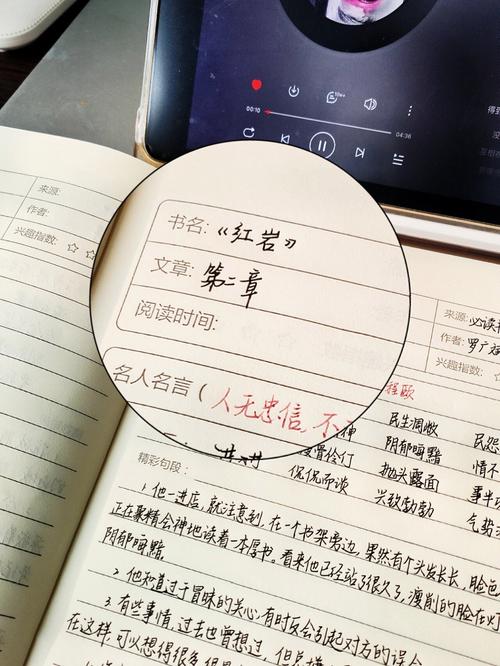 来源:
作者:
兴趣指数: ☆ ☆
00:10
04:36
10w+
书名: 《红岩》
文章: 第二章
阅读时间:
名人名言 ( 人无忠信, 不
来源: 必读
作者: 罗广斌
兴趣指数: ☆
程颐
民生凋敝
民怨
阴郁晦黯
情不
侃侃而谈
抛头露面
兴致勃勃
事半
气势
精彩句段:
1. 他一进店, 就注意到, 在一个书架旁边, 果然有个头发长长, 脸色
正在聚精会神地读着一本厚书。看来他已经站了很久了, 瘦削的脸在灯
阴郁晦黯。
2. 他知道过于冒昧的关心, 有时反会引起对方的误会
3. 有些事情, 过去也曾想过, 但总
在这样, 可以想得很多, 很